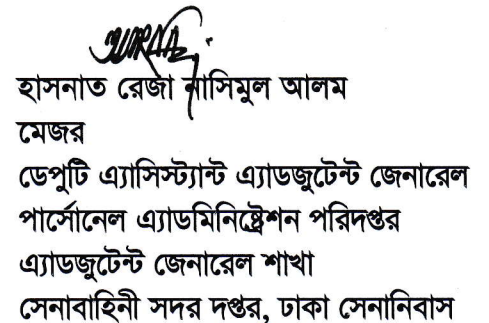 হাসনাত রেজা নাসিমুল আলম
মেজর
ডেপুটি এ্যাসিস্ট্যান্ট এ্যাডজুটেন্ট জেনারেল
পার্সোনেল এ্যাডমিনিষ্ট্রেশন পরিদপ্তর
এ্যাডজুটেন্ট জেনারেল শাখা
সেনাবাহিনী সদর দপ্তর, ঢাকা সেনানিবাস